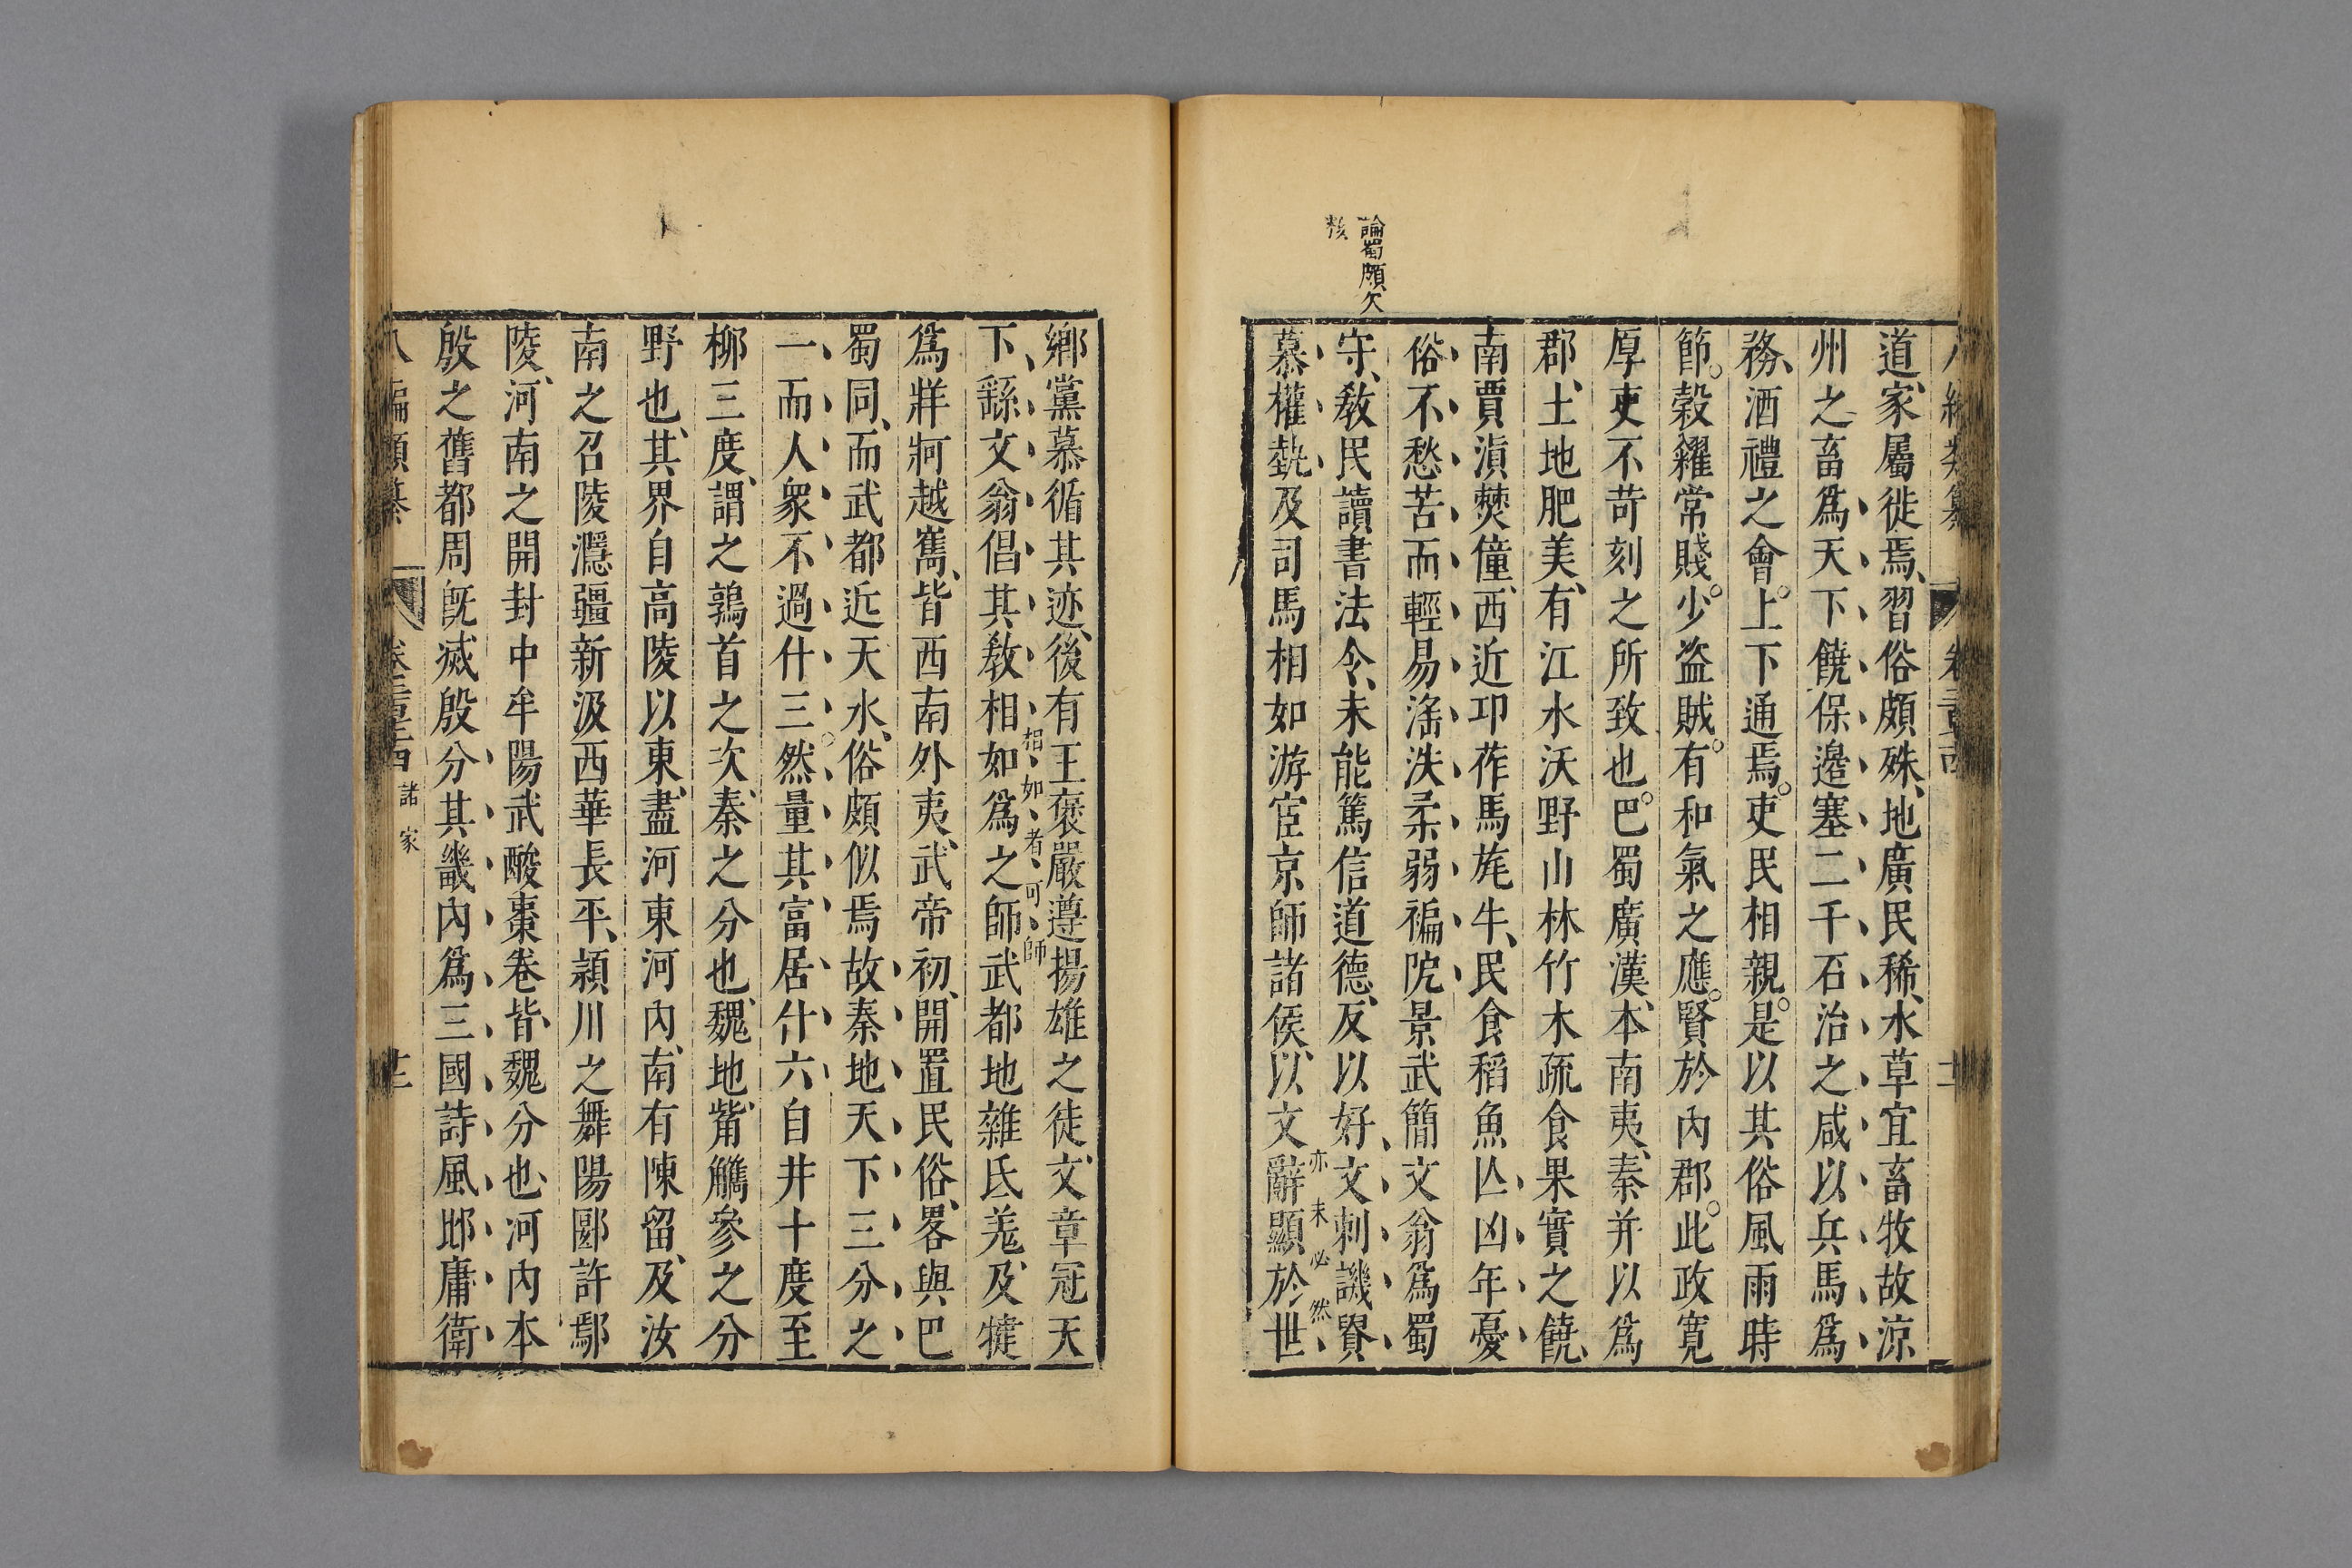 論蜀頗欠
核
道家屬徙焉習俗頗殊地廣民稀水草宜畜牧故涼
州之畜爲天下饒保邉塞二千石治之咸以兵馬爲
務酒禮之會上下通焉吏民相親是以其俗風雨時
節穀糴常賤少盜賊有和氣之應賢於內郡此政寛
厚吏不苛刻之所致也巴蜀廣漢本南夷秦并以爲
郡土地肥美有江水沃野山林竹木疏食果實之饒
南賈滇僰僮西近卭莋馬旄牛民食稻魚亾凶年憂
俗不愁苦而輕易滛泆柔弱褊阨景武簡文翁爲蜀
守敎民讀書法令未能篤信道德反以好文刺譏貴
亦未必然
慕權埶及司馬相如游宦京師諸侯以文辭顯於世
鄉黨慕循其迹後有王褒嚴遵揚雄之徒文章冠天
相如者可師
下繇文翁倡其敎相如爲之師武都地雜氐羗及犍
爲牂牁越嶲皆西南外夷武帝初開置民俗畧與巴
蜀同而武都近天水俗頗似焉故秦地天下三分之
一而人衆不過什三然量其富居什六自井十度至
柳三度謂之鶉首之次秦之分也魏地觜觿參之分
野也其界自高陵以東盡河東河內南有陳留及汝
南之召陵濦疆新汲西華長平潁川之舞陽郾許鄢
陵河南之開封中牟陽武酸棗卷皆魏分也河內本
殷之舊都周旣滅殷分其畿內爲三國詩風邶庸衛
八編類纂 諸家